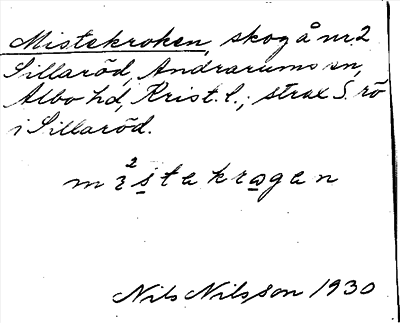 Mistekroken, skog å nr 2
Sillaröd, Andrarums sn,
Albo hd, Krist. l.; strax S. 
i Sillaröd.
Nils Nilsson 1930